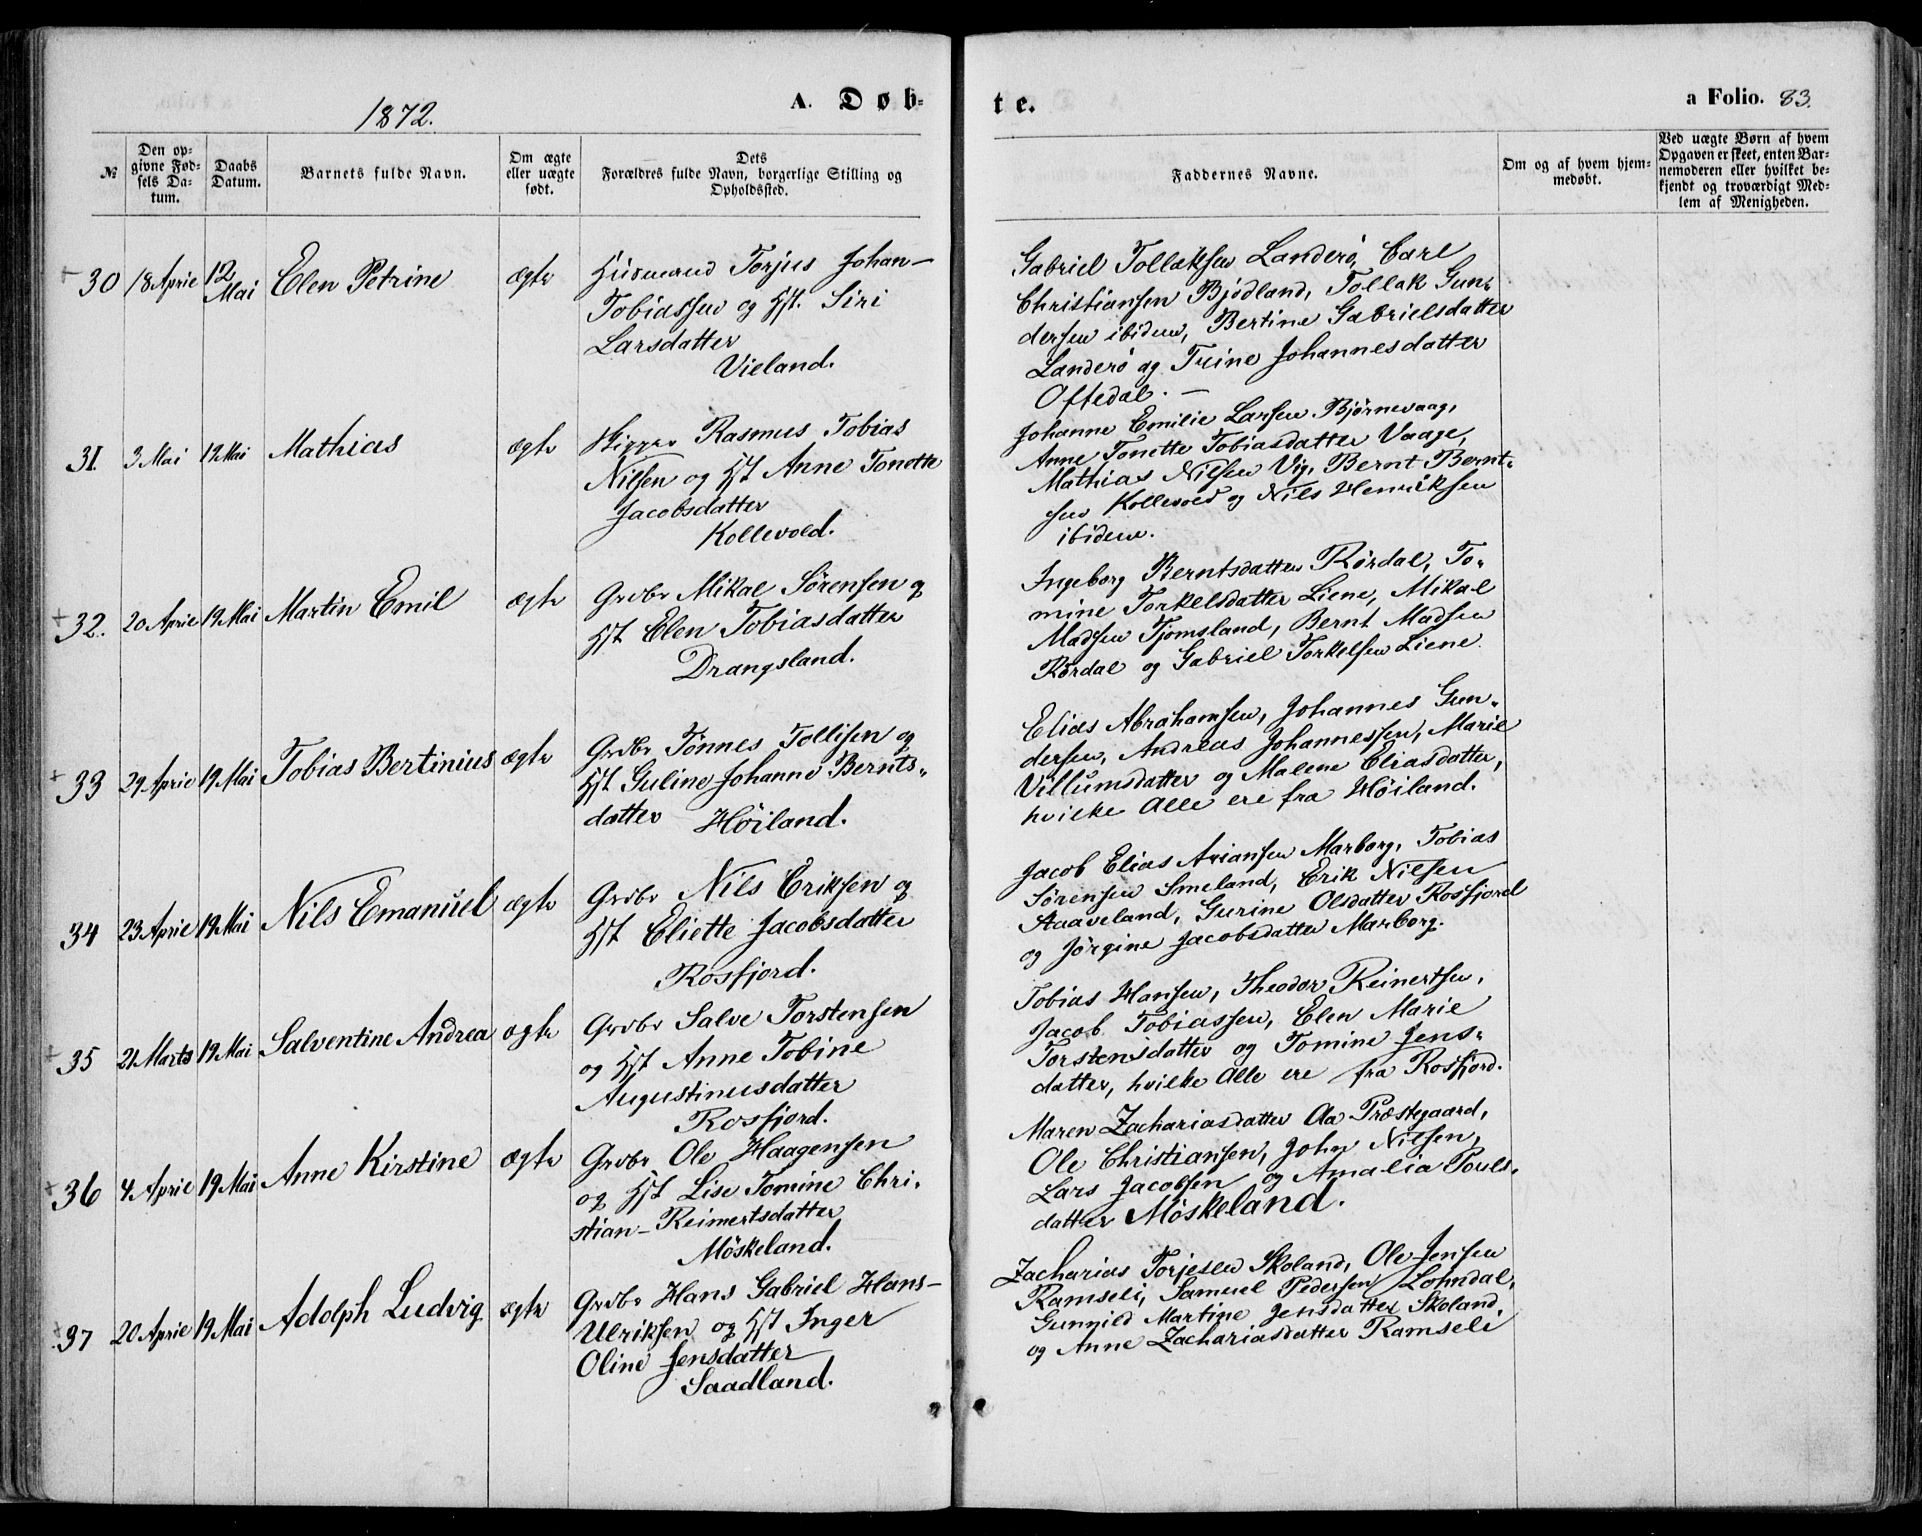 1872.
A. Døb-
te.
a Folio. 83.
№
Den op-
givne Fød-
sels Da-
tum.
Daabs
Datum.
Barnets fulde Navn.
Om ægte
eller uægte
født.
Dets
Forældres fulde Navn, borgerlige Stilling og
Opholdssted.
Faddernes Navne.
Om og af hvem hjem-
medøbt.
Ved uægte Børn af hvem
Opgaven er skeet, enten Bar-
nemoderen eller hvilket be-
kjendt og troværdigt Med-
lem af Menigheden.
+ 30 18 April 12 Mai Elen Petrine ægte
Huusmand Torjus Johan-
Tobiassen og Hst. Siri
Larsdatter
Vieland.
Gabriel Tollaksen Landerø, Carl
Christiansen Bjødland, Tollak Gun-
dersen ibidem, Bertine Gabrielsdatter
Landerø og Trine Johannesdatter
Oftedal. —
31 3 Mai 19 Mai Mathias ægte
Rasmus Tobias
Nilsen og Hst Anne Tonette
Jacobsdatter
Kollevold.
Johanne Emilie Larsen Bjørnevaag,
Anne Tonette Tobiasdatter Vaage,
Mathias Nilsen Vig, Bernt Bernt-
sen Kollevold og Nils Henriksen
ibidem.
+ 32. 20 April 19 Mai Martin Emil ægte
Grdbr Mikal Sørensen og
Hst Elen Tobiasdatter
Drangsland.
Ingeborg Berntsdatter Rørdal, To-
mine Torkelsdatter Liene, Mikal
Madsen Tjomsland, Bernt Madsen
Rørdal og Gabriel Torkelsen Liene.
+ 33 29 April 19 Mai Tobias Bertinius ægte
Grdbr Tønnes Tollisen og
Hst Guline Johanne Bernts-
datter Høiland.
Elias Abrahamsen, Johannes Gun-
dersen, Andreas Johannessen, Marie
Villumsdatter og Malene Eliasdatter,
hvilke Alle ere fra Høiland.
34 23 April 19 Mai Nils Emanuel ægte
Grdbr Nils Eriksen og
Hst Eliette Jacobsdatter
Rosfjord.
Jacob Elias Ariansen Marborg, Tobias
Sørensen Smeland, Erik Nilsen
Staaveland, Gurine Olsdatter Rosfjord
og Jørgine Jacobsdatter Marborg.
+ 35 21 Marts 19 Mai Salventine Andrea ægte
Grdbr Salve Torstensen
og Hst Anne Tobine
Augustinusdatter
Rosfjord.
Tobias Hansen, Theodor Reinertsen,
Jacob Tobiassen, Elen Marie
Torstensdatter og Tomine Jens-
datter, hvilke Alle ere fra Rosfjord.
+ 36 4 April 19 Mai Anne Kirstine ægte
Grdbr Ole Haagensen
og Hst Lise Tomine Chri-
stian-Reimertsdatter
Møskeland.
Maren Zachariasdatter Aa Præstegaard,
Ole Christiansen, John Nilsen,
Lars Jacobsen og Amalia Pouls-
datter Møskeland.
+ 37 20 April 19 Mai Adolph Ludvig ægte
Grdbr Hans Gabriel Hans-
Ulriksen og Hst Inger
Oline Jensdatter
Saadland.
Zacharias Torjesen Skoland, Ole Jensen
Ramseli, Samuel Pedersen Lohndal,
Gunnild Martine Jensdatter Skoland,
og Anne Zachariasdatter Ramseli